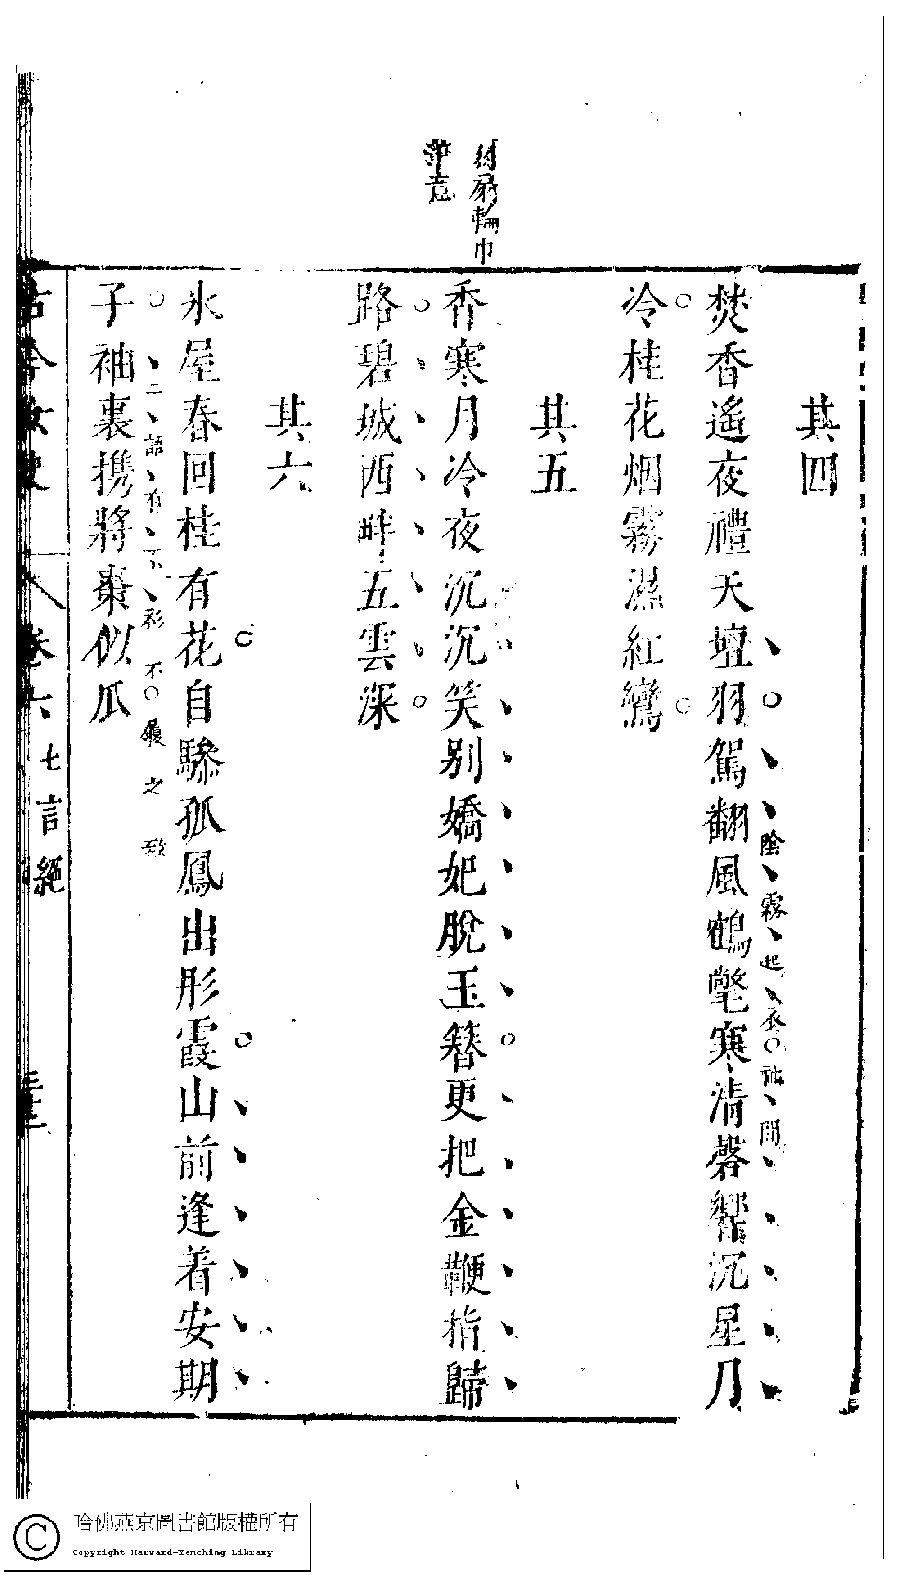 其四
焚香遙夜禮天壇羽駕翻風鶴氅寒清磬響沉星月
陰霧起衣裾間
冷桂花烟霧濕紅鸞
其五
羽扇輪巾
筆意
香寒月冷夜沉沉笑別嬌妃脫玉簪更把金鞭指歸
路碧城西畔五雲深
其六
氷屋春回桂有花自驂孤鳳出彤霞山前逢着安期
二語有一下衫不履之致
子袖裏携將棗似瓜
古今女史 卷六 七言絕
哈佛燕京圖書館版權所有
Copyright Harvard-Yenching Library